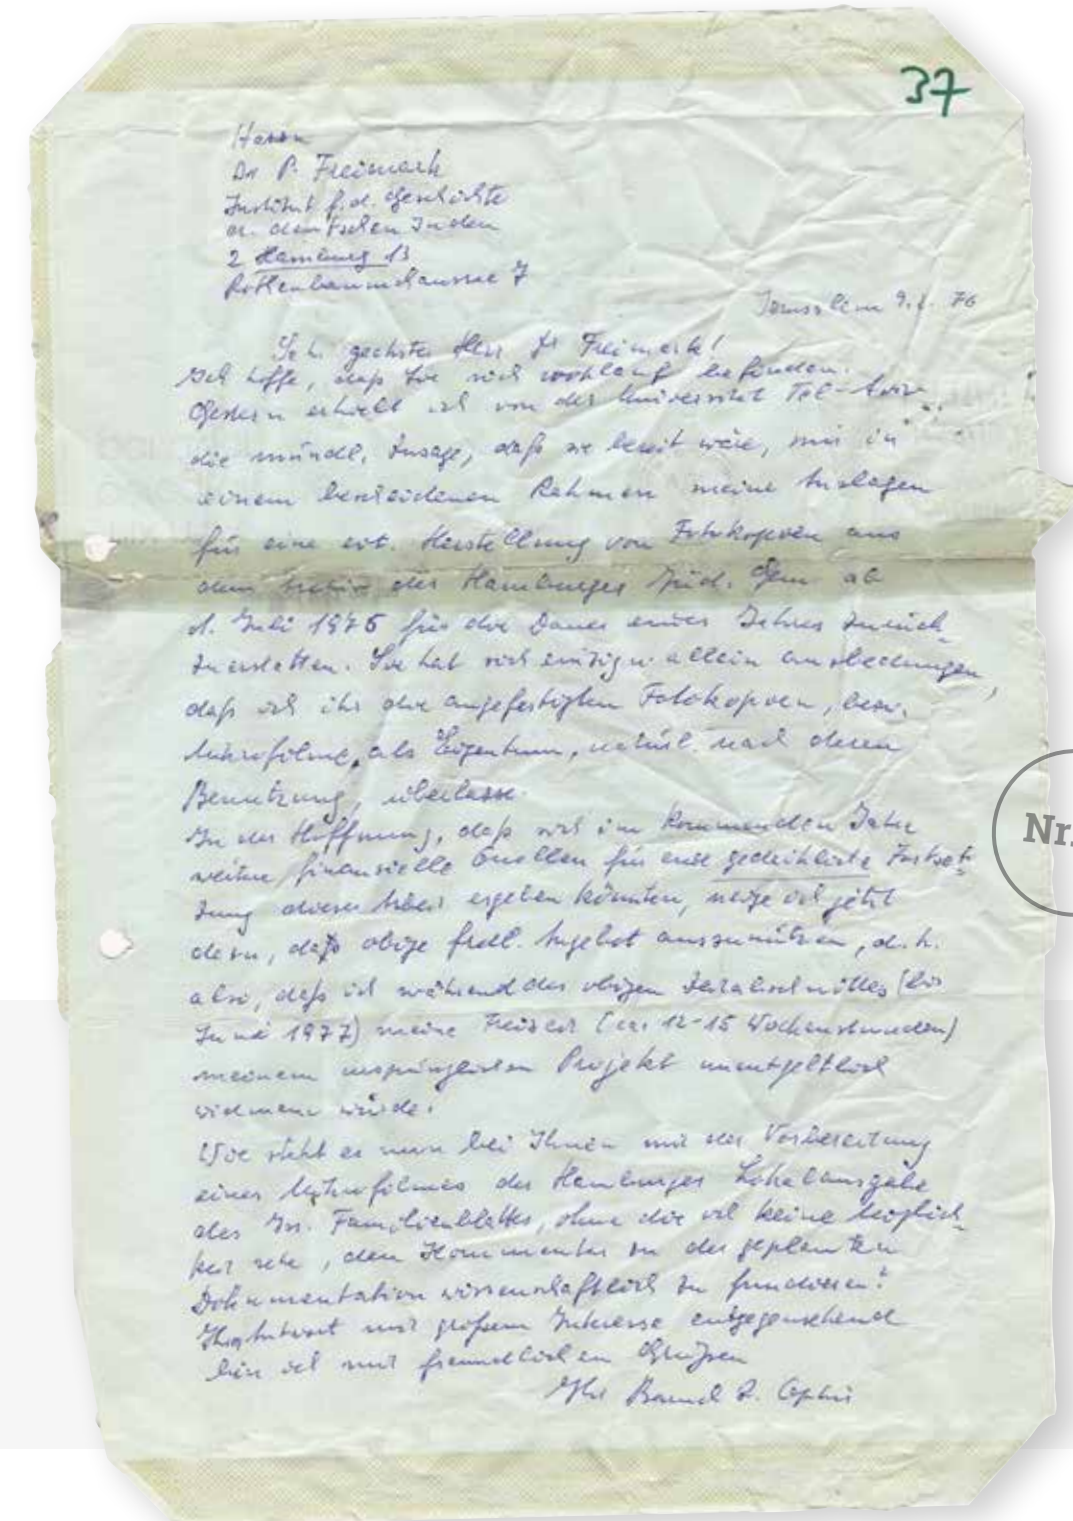 37
Herrn
Dr P. Freimark
Institut f. d. Geschichte
d. deutschen Juden
2 Hamburg 13
Rothenbaumchaussee 7
Jerusalem 9. 76
Sehr geehrter Herr Dr Freimark!
Ich hoffe, daß Sie sich wohlauf befinden.
Gestern erhielt ich von der Universität Tel-Aviv
die mündl. Zusage, daß sie bereit wäre, mir in
einem bescheidenen Rahmen meine Auslagen
für eine evt. Herstellung von Fotokopien aus
dem Archiv der Hamburger Jüd. Gem ab
1. Juli 1976 für die Dauer eines Jahres zurück-
zuerstatten. Sie hat sich einzig u. allein ausbedungen,
daß ich ihr die angefertigten Fotokopien, bezw.
Mikrofilme, als Eigentum, natürl. nach deren
Benutzung, überlasse.
In der Hoffnung, daß sich im kommenden Jahr
weitere finanzielle Quellen für eine gedeihliche Fortset-
zung dieser Arbeit ergeben könnten, neige ich jetzt
dazu, das obige frdl. Angebot auszunützen, d. h.
also, daß ich während des obigen Zeitabschnittes (bis
Juni 1977) meine Freizeit (ca. 12-15 Wochenstunden)
meinem ursprünglichen Projekt unentgeltlich
widmen würde.
Wie steht es nun bei Ihnen mit der Vorbereitung
eines Mikrofilmes der Hamburger Lokalausgabe
des Isr. Familienblattes, ohne die ich keine Möglich-
keit sehe, den Kommentar zu der geplanten
Dokumentation wissenschaftlich zu fundieren?
Ihrer Antwort mit großem Interesse entgegensehend
bin ich mit freundlichen Grüßen
Ihr
Nr.